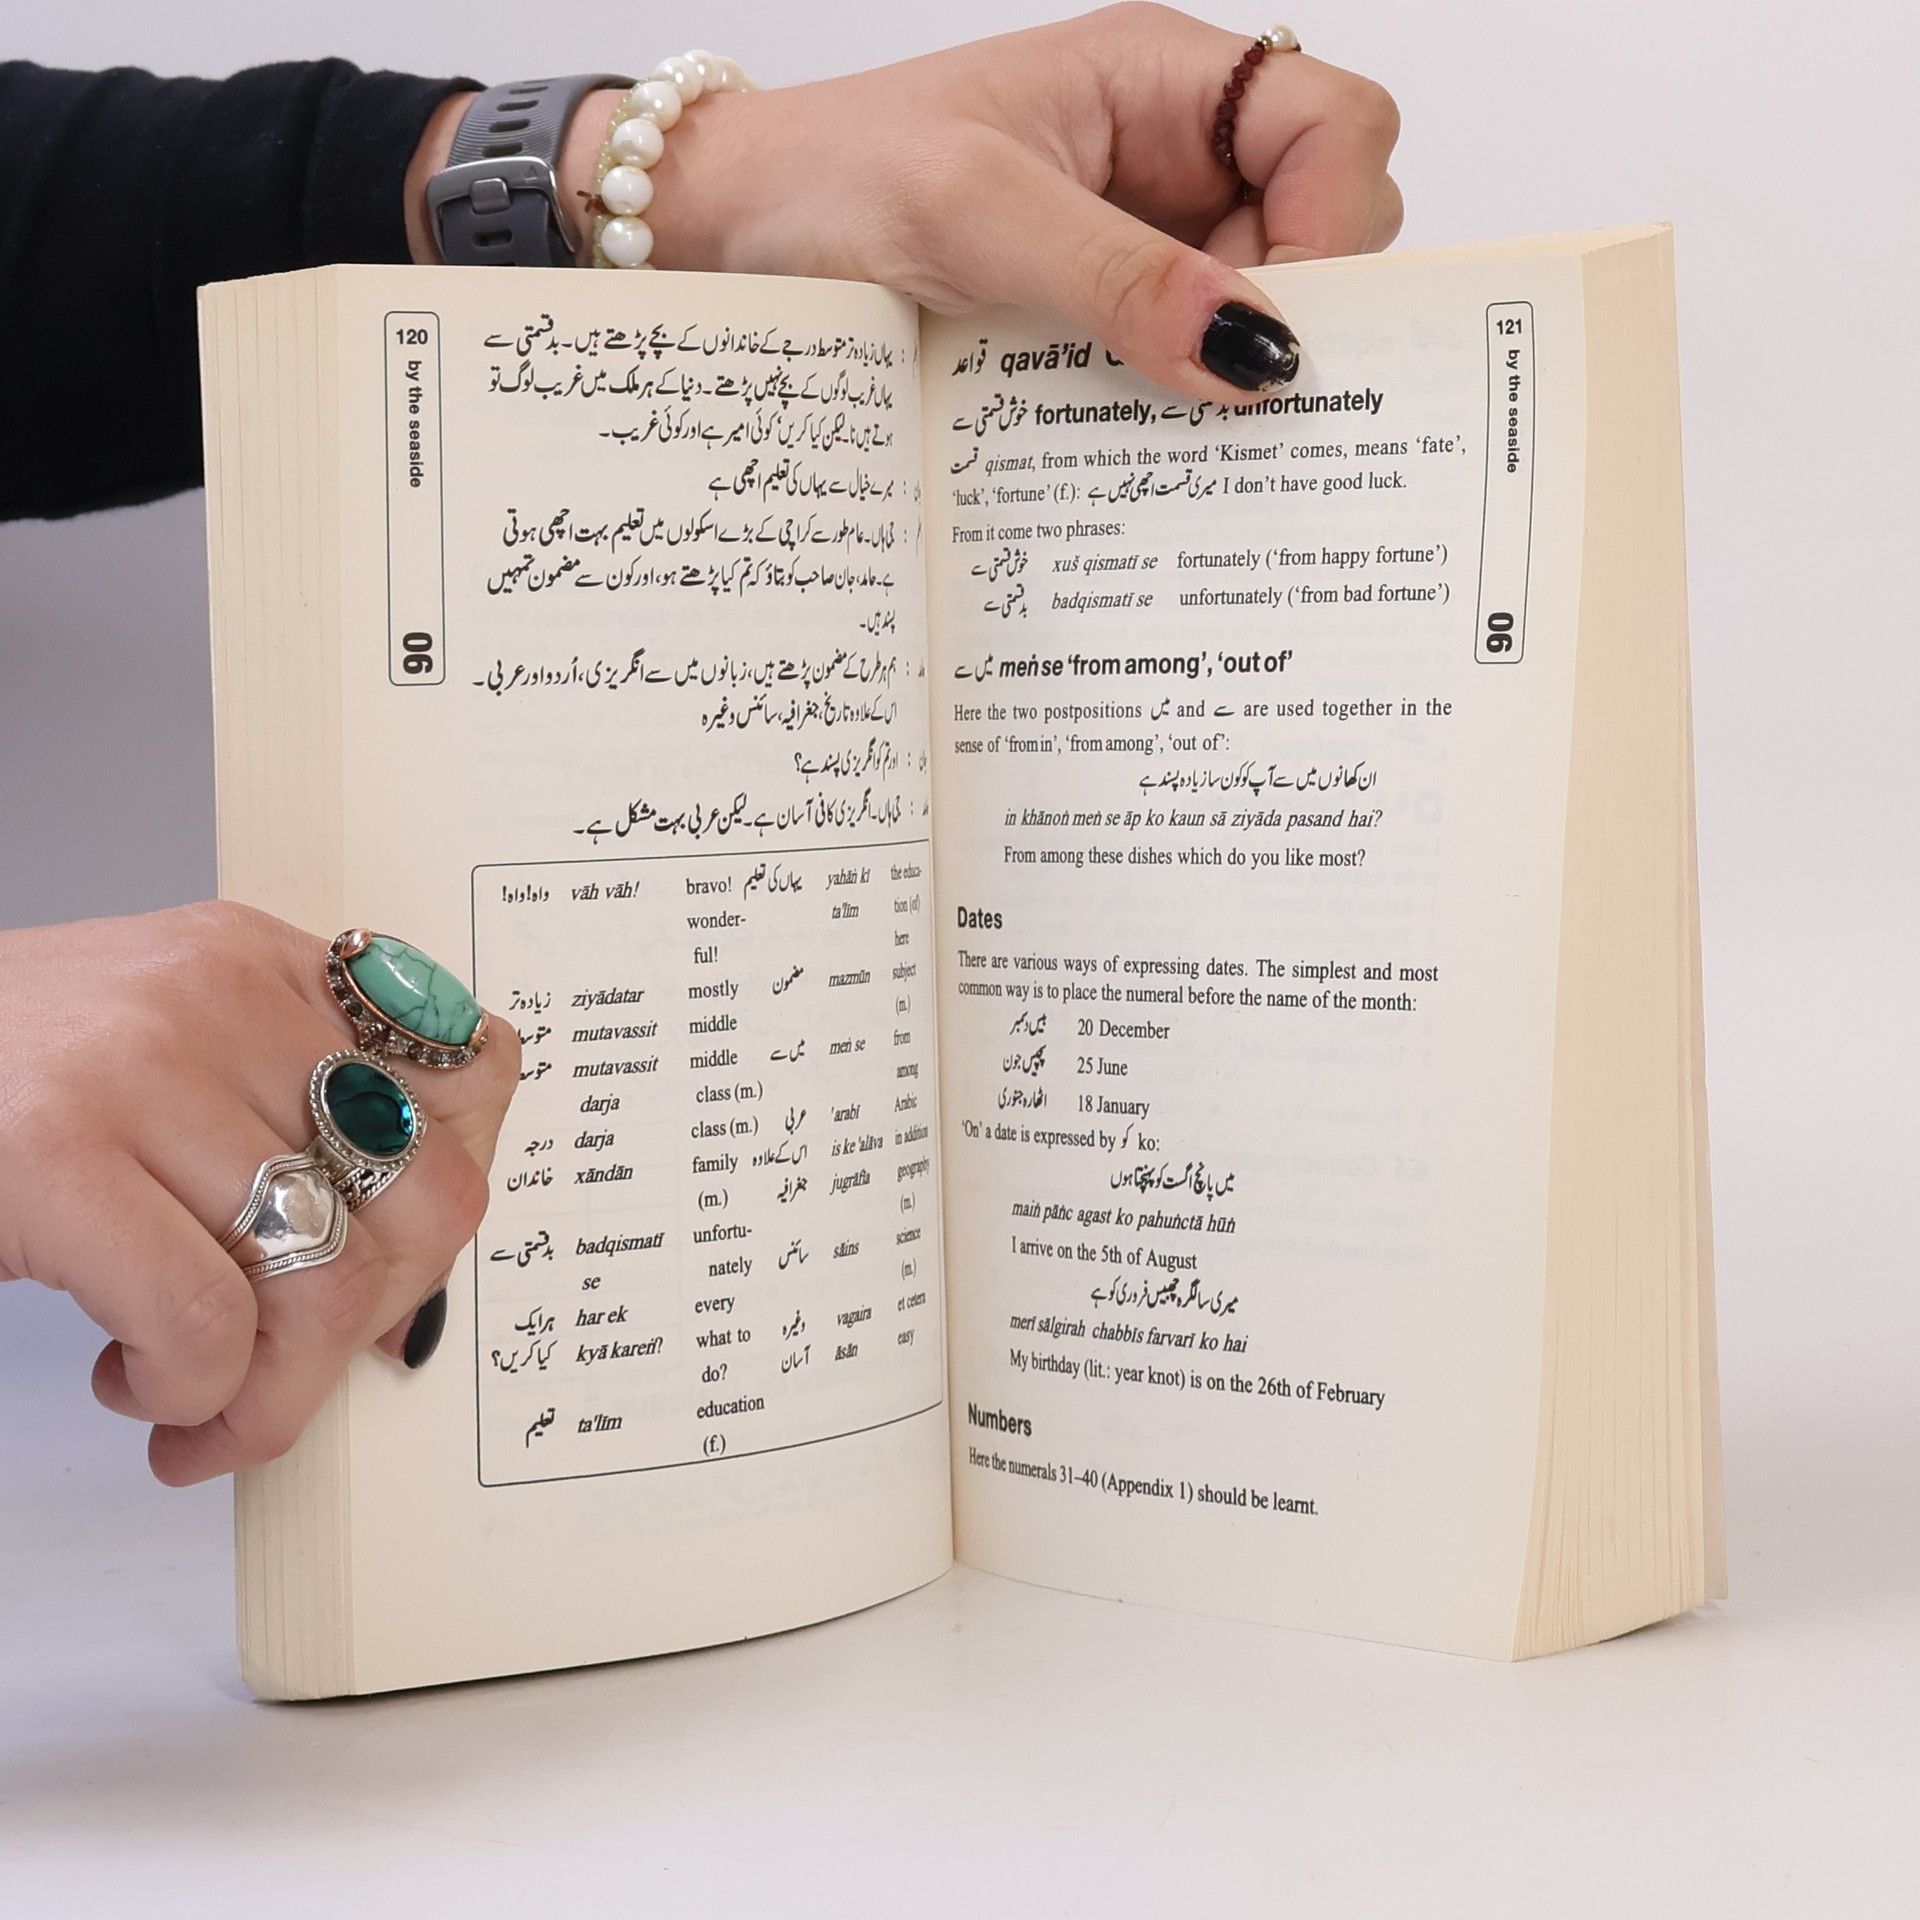 120
by the seaside
06
: یہاں زیادہ تر متوسط درجے کے خاندانوں کے بچے پڑھتے ہیں۔ بدقسمتی سے
یہاں غریب لوگوں کے بچے نہیں پڑھتے۔ دنیا کے ہر ملک میں غریب لوگ تو
ہوتے ہیں نا۔ لیکن کیا کریں، کوئی امیر ہے اور کوئی غریب۔
: میرے خیال سے یہاں کی تعلیم اچھی ہے
: جی ہاں۔ عام طور سے کراچی کے بڑے اسکولوں میں تعلیم بہت اچھی ہوتی
ہے۔ حامد، جان صاحب کو بتاؤ کہ تم کیا پڑھتے ہو، اور کون سے مضمون تمہیں
پسند ہیں۔
: ہم ہر طرح کے مضمون پڑھتے ہیں، زبانوں میں سے انگریزی، اُردو اور عربی۔
اس کے علاوہ تاریخ، جغرافیہ، سائنس وغیرہ
جان : اور تم کو انگریزی پسند ہے؟
: جی ہاں۔ انگریزی کافی آسان ہے۔ لیکن عربی بہت مشکل ہے۔
واہ! واہ! vāh vāh! bravo!
wonder-
ful!
زیادہ تر ziyādatar mostly
mutavassit middle
mutavassit middle
darja class (m.)
درجہ darja class (m.)
خاندان xāndān family
(m.)
بدقسمتی سے badqismatī unfortu-
se nately
ہر ایک har ek every
کیا کریں؟ kyā kareṅ? what to
do?
تعلیم ta'līm education
(f.)
یہاں کی تعلیم yahāṅ kī the educa-
ta'līm tion (of)
here
مضمون mazmūn subject
(m.)
میں سے meṅ se from
among
عربی 'arabī Arabic
اس کے علاوہ is ke 'alāva in addition
جغرافیہ jugrāfia geography
(m.)
سائنس sāins science
(m.)
وغیرہ vagaira et cetera
آسان āsān easy
121
by the seaside
06
قواعد qavā'id
خوش قسمتی سے fortunately, بدقسمتی سے unfortunately
قسمت qismat, from which the word ‘Kismet’ comes, means ‘fate’,
‘luck’, ‘fortune’ (f.): میری قسمت اچھی نہیں ہے I don’t have good luck.
From it come two phrases:
خوش قسمتی سے xuš qismatī se fortunately (‘from happy fortune’)
بدقسمتی سے badqismatī se unfortunately (‘from bad fortune’)
میں سے meṅ se ‘from among’, ‘out of’
Here the two postpositions میں and سے are used together in the
sense of ‘from in’, ‘from among’, ‘out of’:
ان کھانوں میں سے آپ کو کون سا زیادہ پسند ہے
in khānoṅ meṅ se āp ko kaun sā ziyāda pasand hai?
From among these dishes which do you like most?
Dates
There are various ways of expressing dates. The simplest and most
common way is to place the numeral before the name of the month:
بیس دسمبر 20 December
پچیس جون 25 June
اٹھارہ جنوری 18 January
‘On’ a date is expressed by کو ko:
میں پانچ اگست کو پہنچتا ہوں
maiṅ pāṅc agast ko pahuṅctā hūṅ
I arrive on the 5th of August
میری سالگرہ چھبیس فروری کو ہے
merī sālgirah chabbīs farvarī ko hai
My birthday (lit.: year knot) is on the 26th of February
Numbers
Here the numerals 31–40 (Appendix 1) should be learnt.